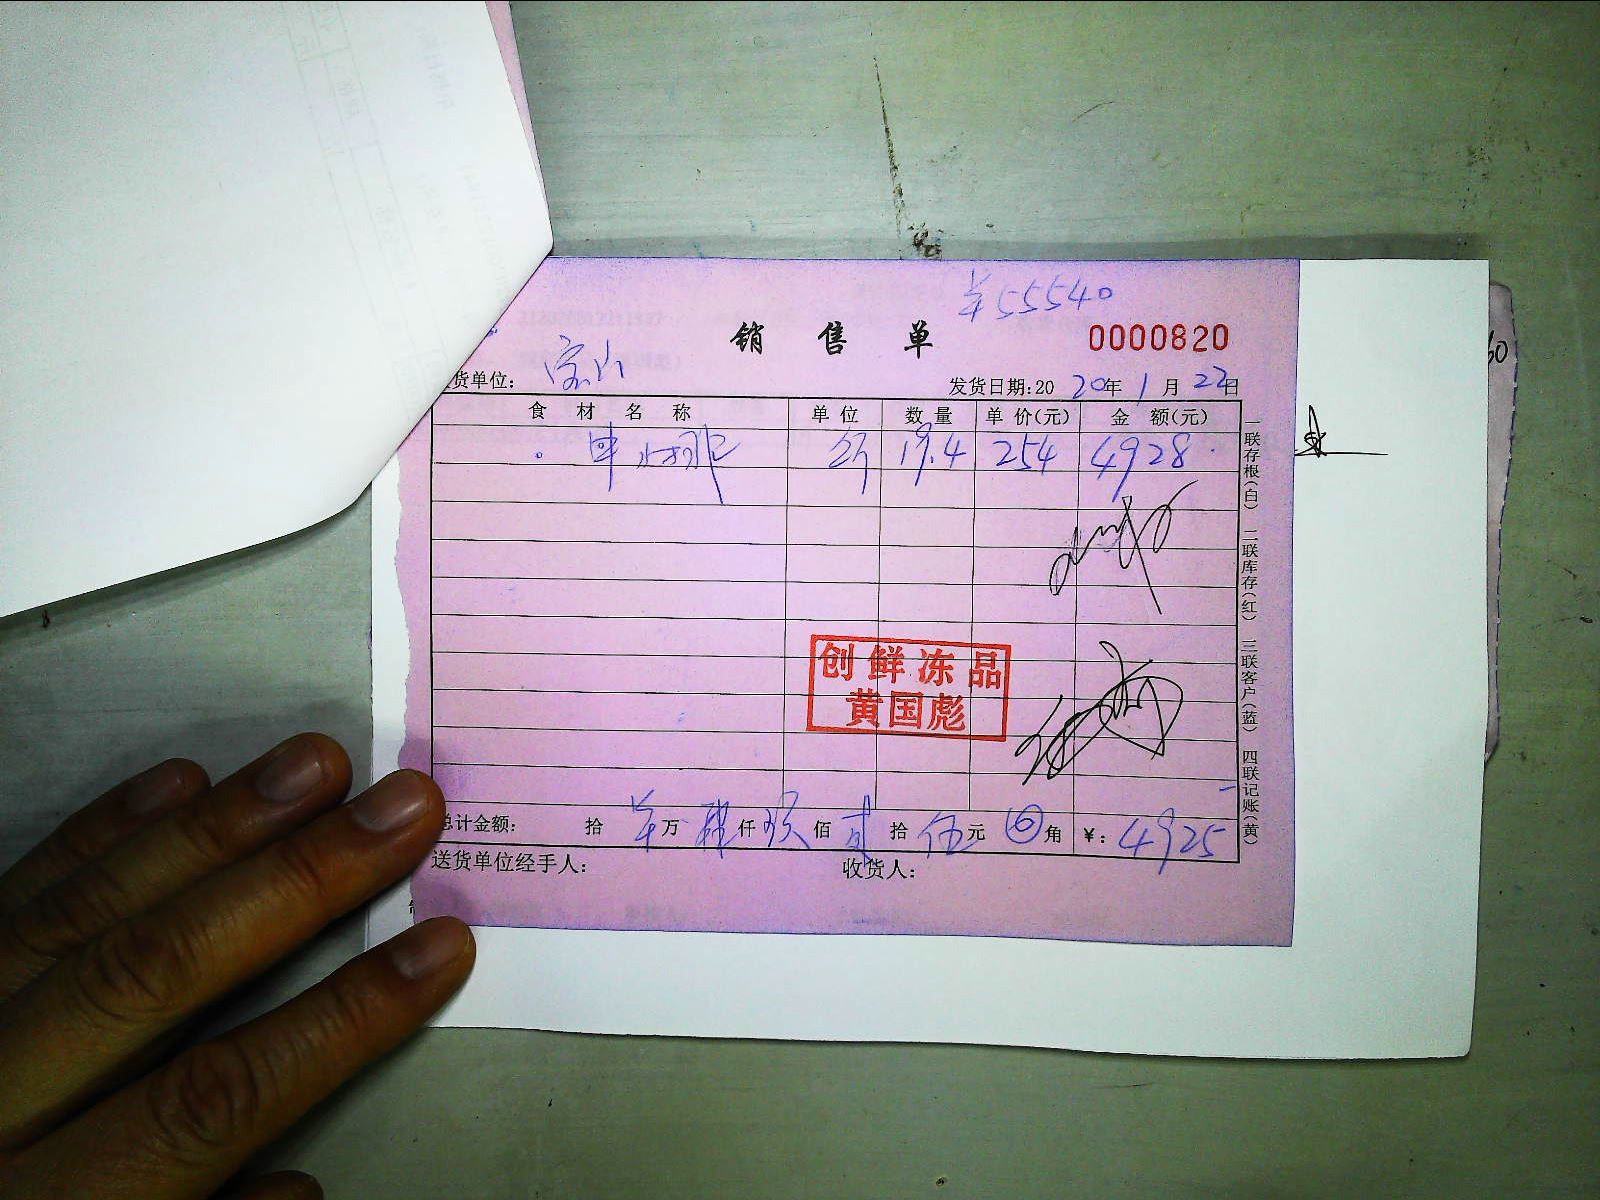 ¥55540
销售单
0000820
货单位: 宝山
发货日期:2020年1月22日
食材名称 单位 数量 单价(元) 金额(元)
斤 19.4 254 4928
创鲜冻品
黄国彪
总计金额: 拾 万 肆仟玖佰贰拾伍元 角 ¥: 4925
送货单位经手人: 收货人:
一联存根(白) 二联库存(红) 三联客户(蓝) 四联记账(黄)